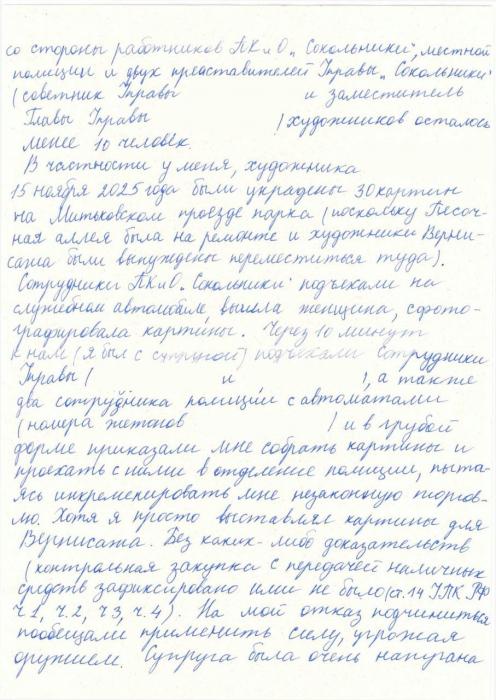 со стороны работников ПКиО „Сокольники", местной
полиции и двух представителей Управы „Сокольники"
(советник Управы и заместитель
Главы Управы ) художников осталось
менее 10 человек.
В частности у меня, художника
15 ноября 2025 года были украдены 30 картин
на Митьковском проезде парка (поскольку Песоч-
ная аллея была на ремонте и художники Верни-
сажа были вынуждены переместиться туда).
Сотрудники ПКиО „Сокольники" подъехали на
служебном автомобиле, вышла женщина, сфото-
графировала картины. Через 10 минут
к нам (я был с супругой) подъехали сотрудники
Управы ( и ), а также
два сотрудника полиции с автоматами
(номера жетонов ) и в грубой
форме приказали мне собрать картины и
проехать с ними в отделение полиции, пыта-
ясь инкременировать мне незаконную торгов-
лю. Хотя я просто выставлял картины для
Вернисажа. Без каких-либо доказательств
(контрольная закупка с передачей наличных
средств зафиксировано ими не было (ст. 14 УПК РФ
ч 1, ч. 2, ч 3, ч. 4). На мой отказ подчиниться
пообещали применить силу, угрожая
оружием. Супруга была очень напугана